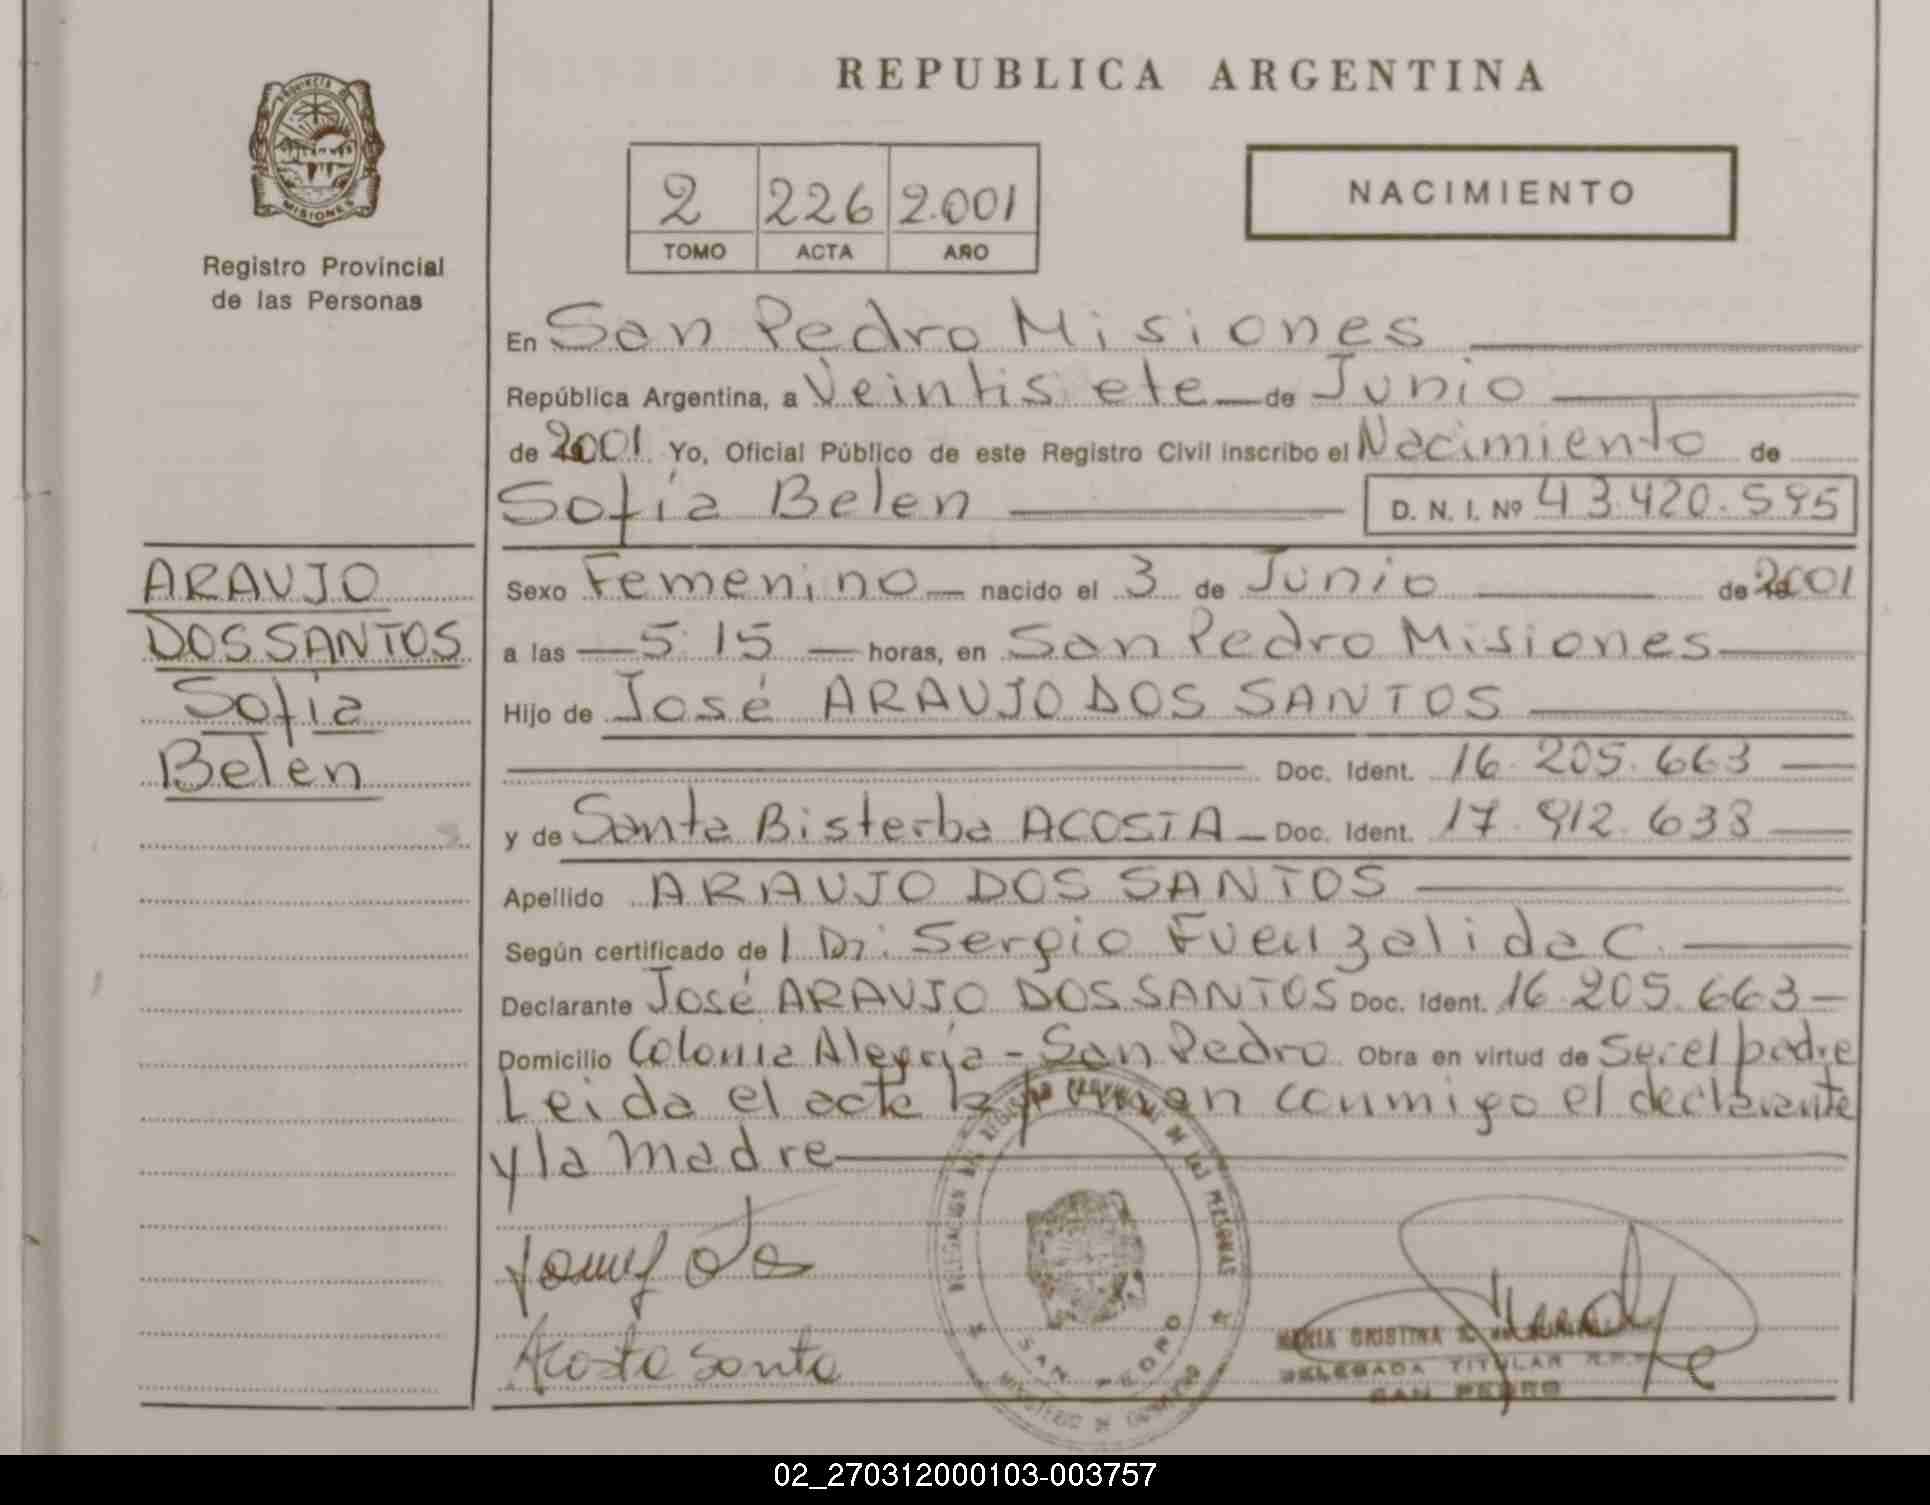 REPUBLICA ARGENTINA
PROVINCIA DE
MISIONES
Registro Provincial
de las Personas
2 226 2.001
TOMO ACTA AÑO
NACIMIENTO
En San Pedro Misiones
República Argentina, a Veintisiete de Junio
de 2001 Yo, Oficial Público de este Registro Civil inscribo el Nacimiento de
Sofía Belen D. N. I. Nº 43.420.595
ARAUJO
DOS SANTOS
Sofía
Belen
Sexo Femenino nacido el 3 de Junio de 2001
a las 5:15 horas, en San Pedro Misiones
Hijo de José ARAUJO DOS SANTOS
Doc. Ident. 16.205.663
y de Santa Bisterba ACOSTA Doc. Ident. 17.912.638
Apellido ARAUJO DOS SANTOS
Según certificado de l Dr: Sergio Fuenzalida C.
Declarante José ARAUJO DOS SANTOS Doc. Ident. 16.205.663
Domicilio Colonia Alegría - San Pedro Obra en virtud de ser el padre
Leida el acta la firman conmigo el declarante
y la madre
Acosta Santa
SAN PEDRO
MARIA CRISTINA
DELEGADA TITULAR
SAN PEDRO
02_270312000103-003757